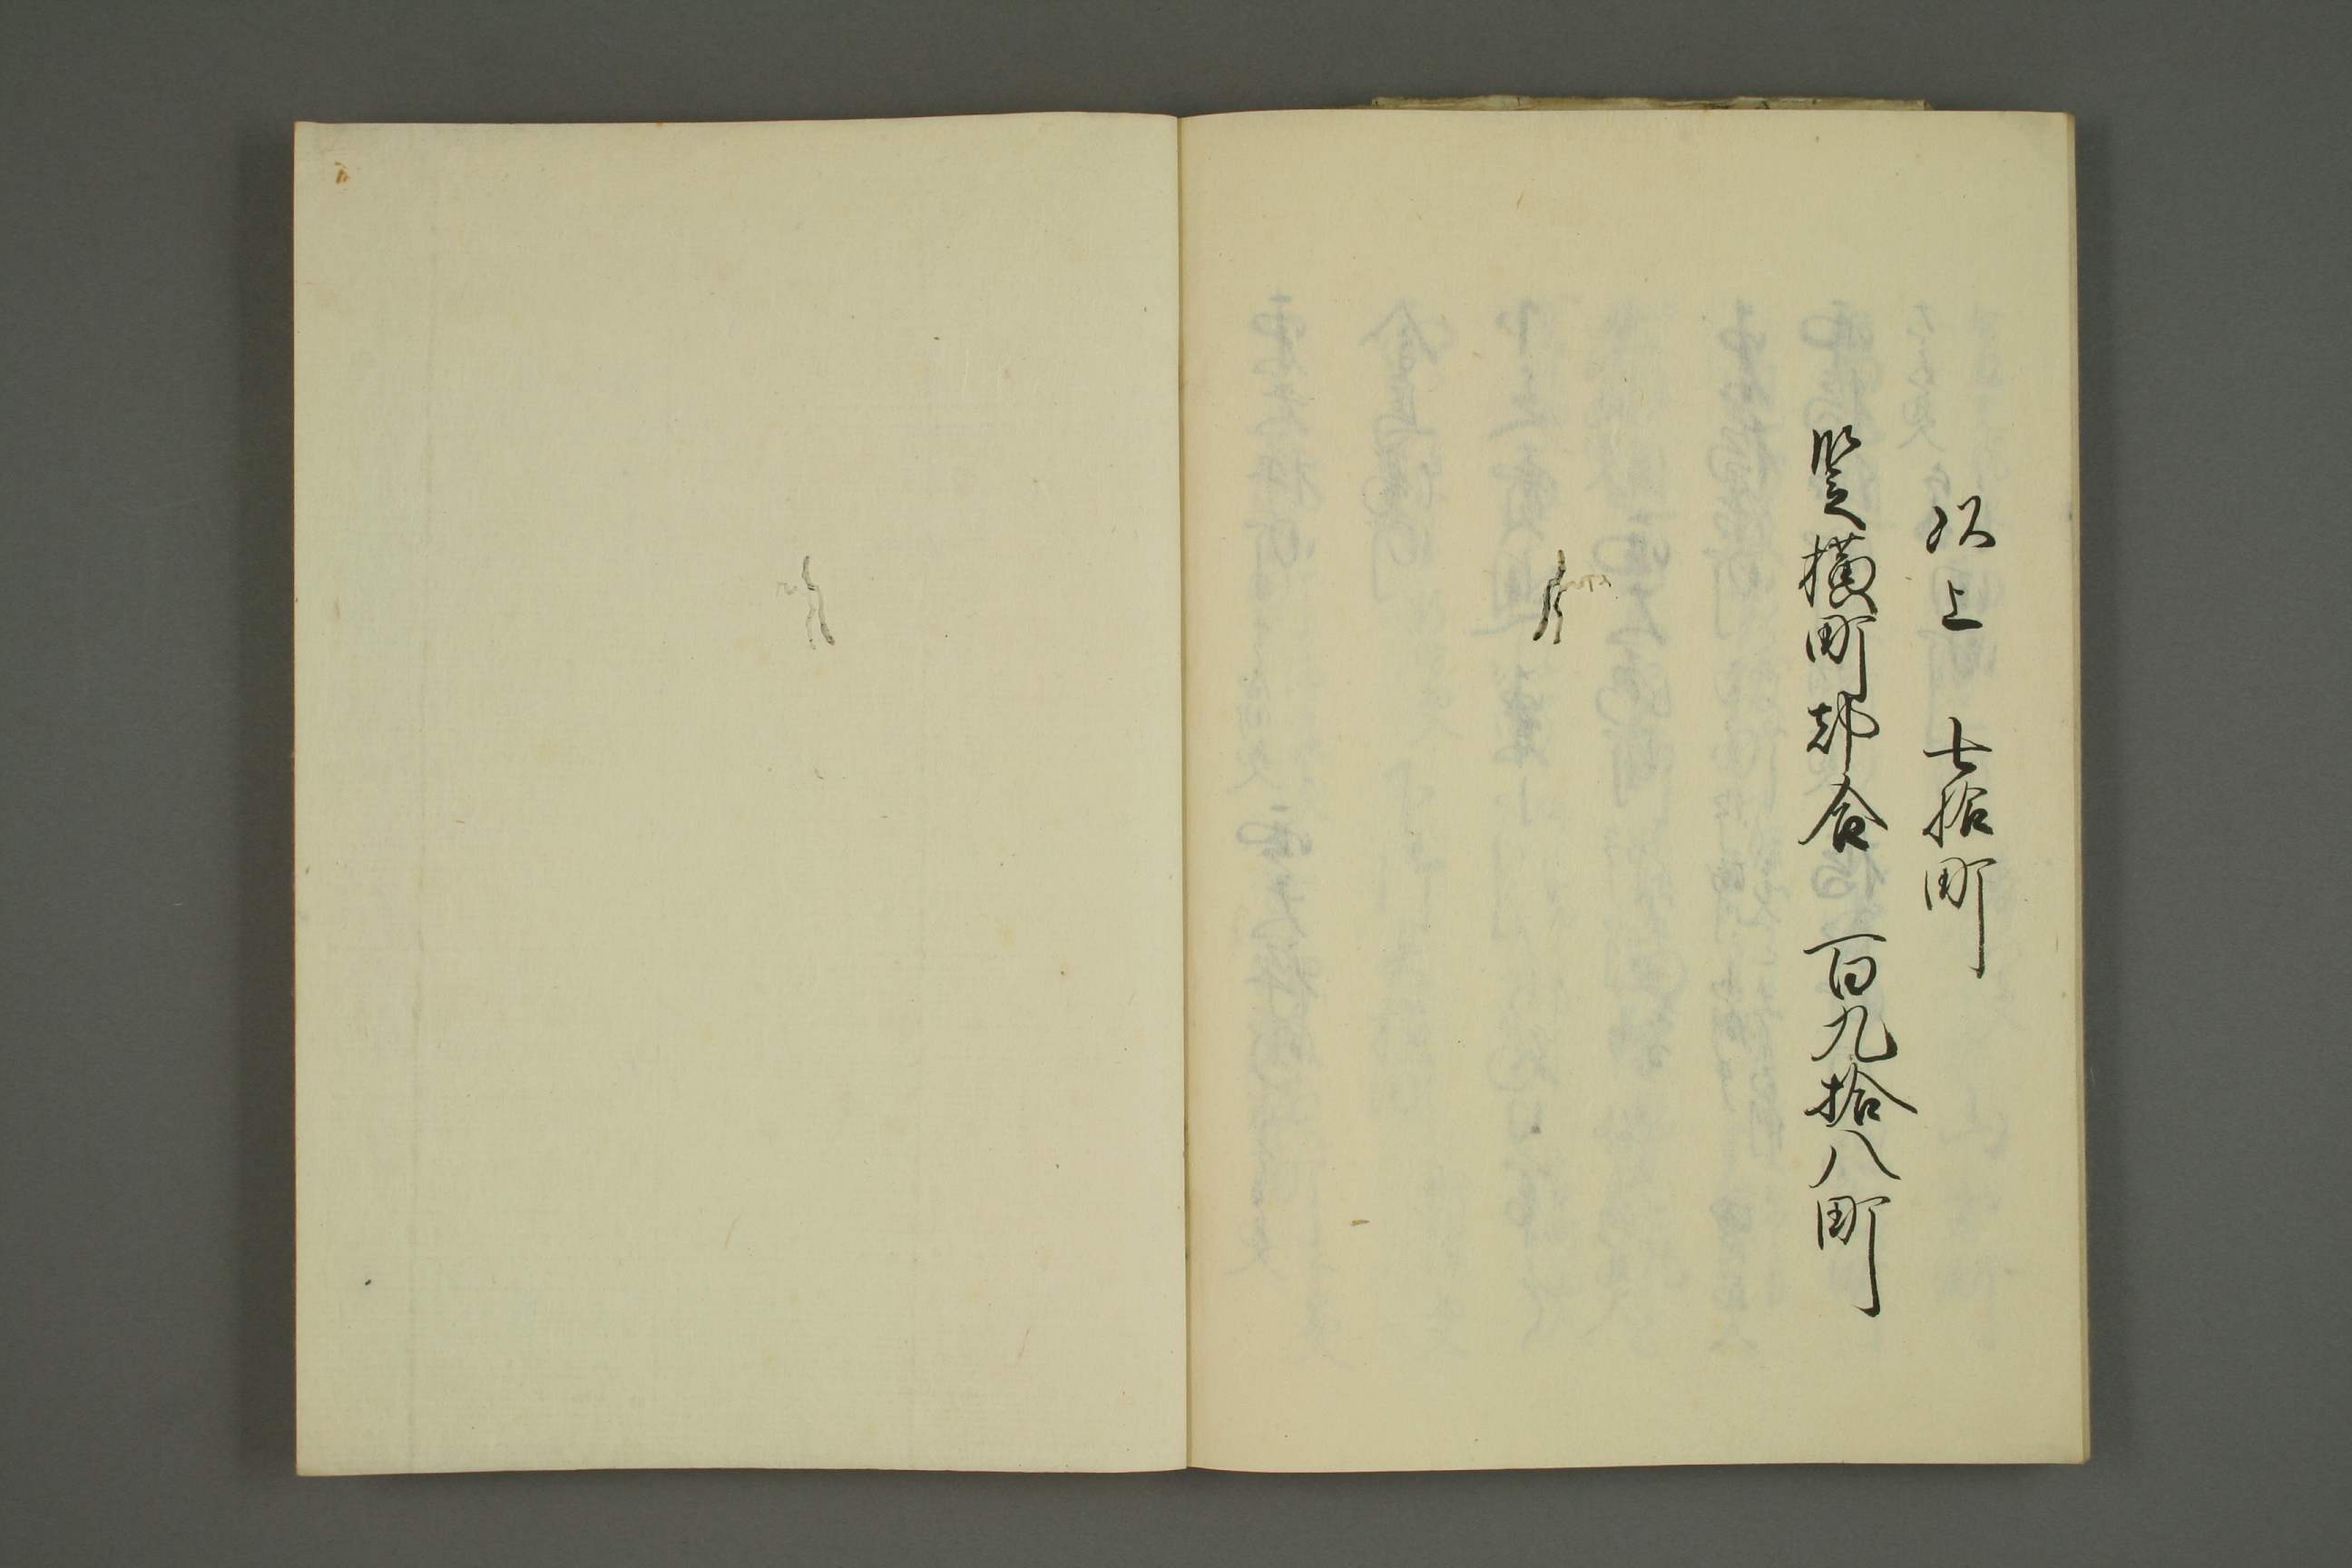 以上　七拾町
竪横町都合　百九拾八町